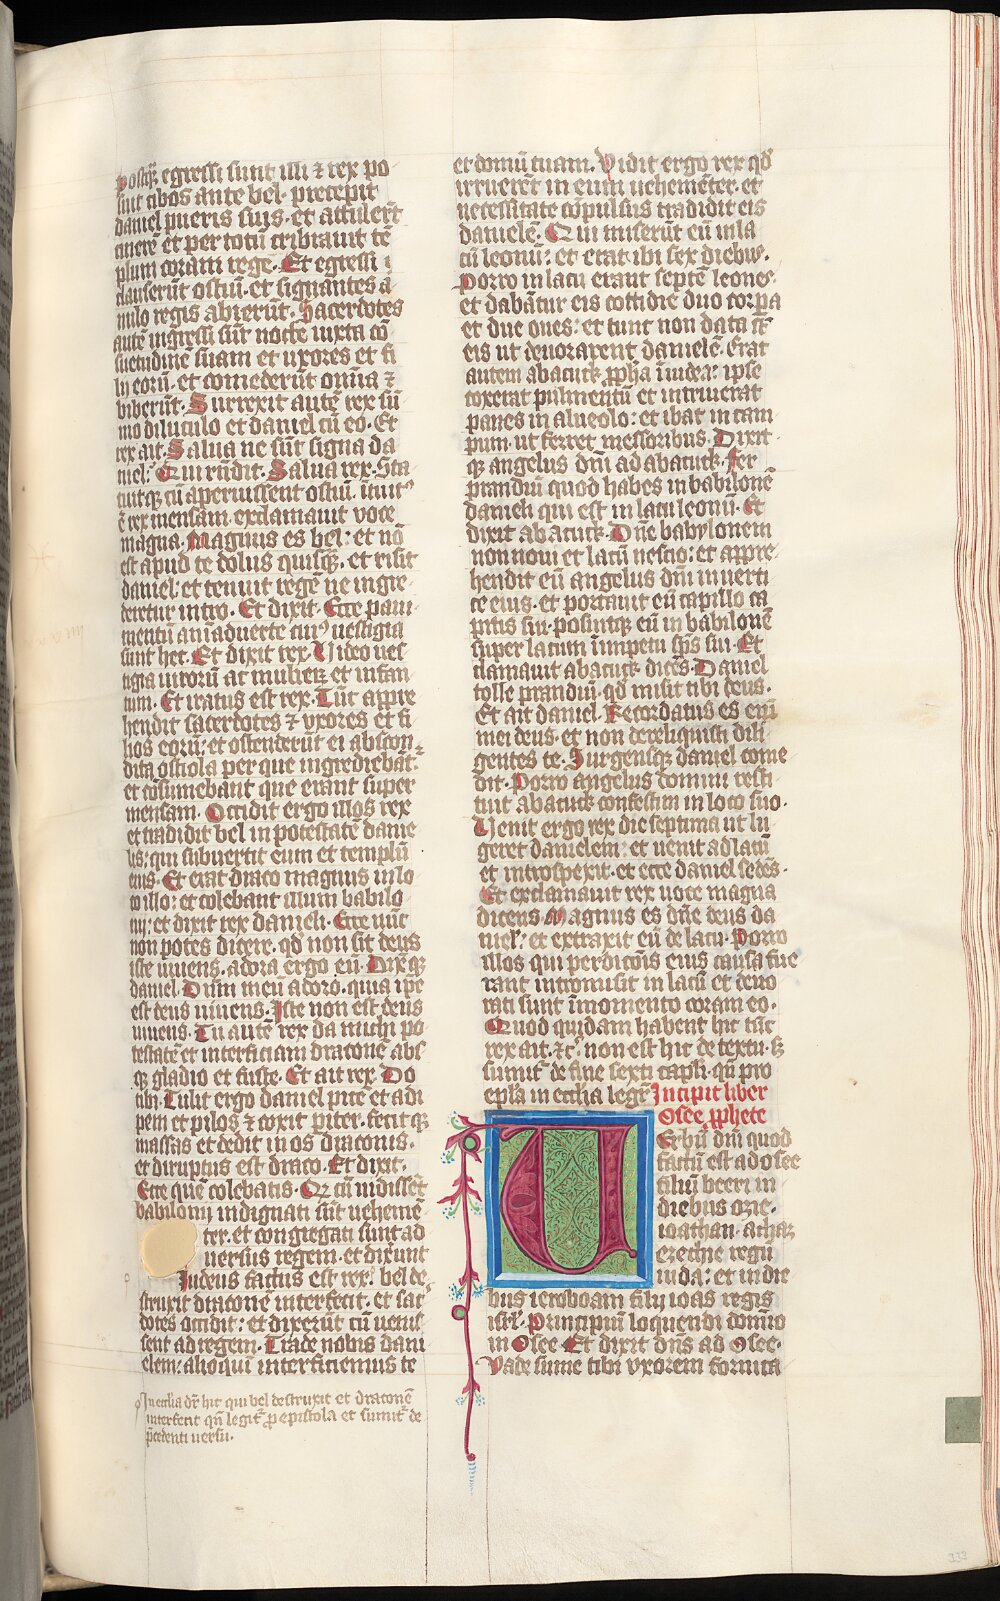 postqȝ egressi sunt illi ⁊ rex po
suit cibos ante bel· precepit
daniel pueris suis· et attulerūt
cinerē et per totū cribrauit tē
plum coram rege· Et egressi
clauserūt ostiū· et signantes a
nulo regis abierūt· Sacerdotes
autē ingressi sūt nocte iuxta cō
suetudinē suam et uxores et fi
lij eorū· et comederūt omīa ⁊
biberūt· Surrexit autē rex sū
mo diluculo et daniel cū eo· Et
rex ait· Salua ne sūt signa da
niel? Qui rñdit· Salua rex· Sta
timqȝ cū aperuissent ostiū· ītuitꝰ
ē rex mensam· exclamauit voce
magna· Magnus es bel: et nō
est apud te dolus quisqȝ· et risit
daniel: et tenuit regē ne ingre
deretur intro· Et dixit· Ecce paui
mentū aīaduerte cuiꝰ uestigia
sunt hec· Et dixit rex· Video ues
tigia uirorū ac mulieꝝ et infan
tum· Et iratus est rex· Tūc appre
hendit sacerdotes ⁊ vxores et fi
lios eorū: et ostenderūt ei abscon
dita ostiola per que ingrediebāt̄
et cōsumebant que erant super
mensam· Occidit ergo illos rex
et tradidit bel in potestatē danie
lis: qui subuertit eum et templū
eius· Et erat draco magnus in lo
co illo: et colebant illum babilo
nij: et dixit rex danieli· Ecce nūc
non potes dicere· qđ non sit deus
iste uiuens· adora ergo eū· Dixitqȝ
daniel· Dñm meū adoro· quia ipē
est deus uiuens· Iste non est deus
uiuens· Tu autē rex da michi po
testatē et interficiam draconē abs
qȝ gladio et fuste· Et ait rex· Do
tibi· Tulit ergo daniel picē et adi
pem et pilos ⁊ coxit piter· fecitqȝ
massas et dedit in os draconis·
et diruptus est draco· Et dixit·
Ecce quē colebatis· Qđ cū audisset
babilonij indignati sūt uehemē
ter· et congregati sunt ad
uersus regem· et dixerunt
Iudeus factus est rex· bel de
struxit draconē interfecit· et sacer
dotes occidit: et dixerūt cū uenis
sent ad regem· Trade nobis dani
elem: alioqui interficiemus te
In ecclīa dr̄ hic qui bel destruxit et draconē
interfecit qn̄ legit̄ ꝓ epistola et sumit̄ de
p̄cedenti uersu·
et domū tuam· Vidit ergo rex qđ
irruerēt in eum uehemēter· et
necessitate cōpulsus tradidit eis
danielē· Qui miserūt eū in la
cū leonū: et erat ibi sex diebꝰ·
Porro in lacu erant septē leones·
et dabātur eis cottidie duo corpa
et due oues: et tunc non data sūt
eis ut deuorarent danielē· Erat
autem abacuck ꝓpha ī iudea: ipse
coxerat pulmentū et intriuerat
panes in alueolo: et ibat in cam
pum ut ferret messoribus· Dixit
qȝ angelus dñi ad abacuck· Fer
prandiū quod habes in babilonē
danieli qui est in lacu leonū· Et
dixit abacuck· Dñe babylonem
non noui et lacū nescio: et appre
hendit eū angelus dñi in uerti
ce eius· et portauit eū capillo ca
pitis sui· posuitqȝ eū in babilonē
super lacum ī impetu sp̄s sui· Et
clamauit abacuck dicēs· Daniel
tolle prandiū· qđ misit tibi deus·
Et ait daniel· Recordatus es eni
mei deus· et non dereliquisti dili
gentes te· Surgensqȝ daniel come
dit· Porro angelus domini resti
tuit abacuck confestim in loco suo·
Venit ergo rex die septima ut lu
geret danielem: et uenit ad lacū
et introspexit· et ecce daniel sedēs·
Et exclamauit rex uoce magna
dicens Magnus es dñe deus da
niel: et extraxit eū de lacu· Porro
illos qui perdicōis eius causa fue
rant intromisit in lacū et deuo
rati sunt ī momento coram eo·
Quod quidam habent hic tūc
rex ait· ⁊cꝰ non est hic de textu· sȝ
sumit̄ de fine sexti capli· qn̄ pro
epl̄a in ecclīa legit̄ Incipit liber
Osee ꝓphete
Verbū dñi quod
factū est ad osee
filiū beeri in
diebus ozie·
ioathan· achaz
ezechie regū
iuda: et in die
bus ieroboam filij ioas regis
isrl̄· Principiū loquendi domīo
in Osee· Et dixit dñs ad Osee·
Vade sume tibi vxorem fornica
333